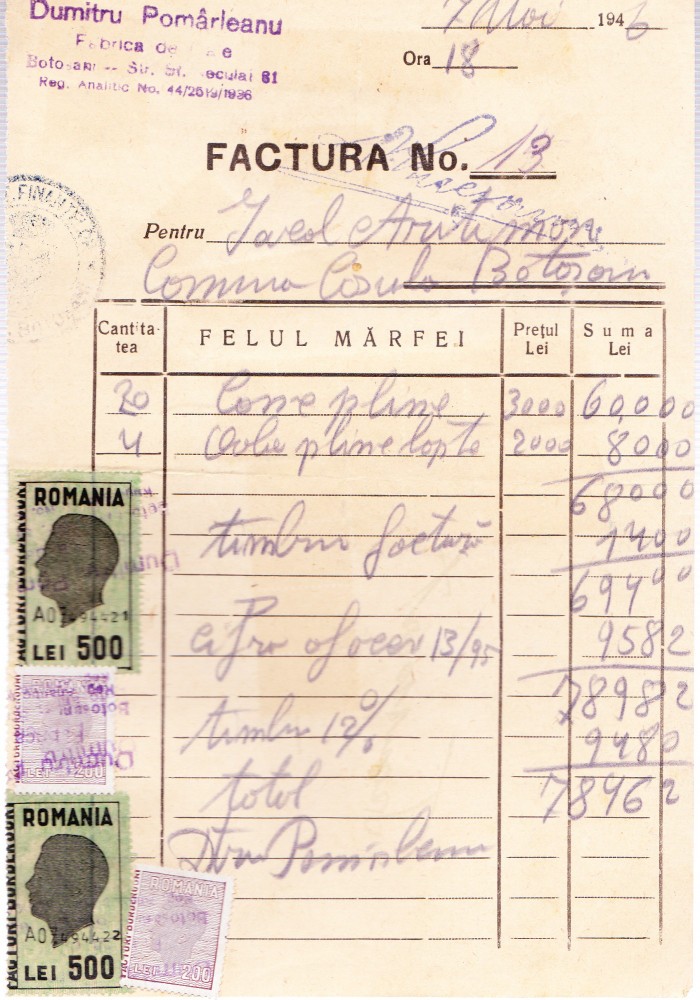 Dumitru Pomârleanu
Fabrica de
Botosani -- Str. Sf. 81
Reg. Analitic No. 44/2519/1936
7 Mai 1946
Ora 18
FACTURA No. 13
Pentru
Comuna Cosula Botoșani
Cantitatea FELUL MĂRFEI Prețul Lei Suma Lei
20 pline 3000 60,000
4 pline 2000 8000
68000
timbru factură 1400
69400
cifra afaceri 13/95 9582
78982
timbru 12% 9480
total 78462
Dum Pomârleanu
ROMANIA
FACTURI-BORDEROURI
A07494421
LEI 500
FACTURI-BORDEROURI
LEI 200
ROMANIA
FACTURI-BORDEROURI
A07494422
LEI 500
ROMANIA
FACTURI-BORDEROURI
LEI 200